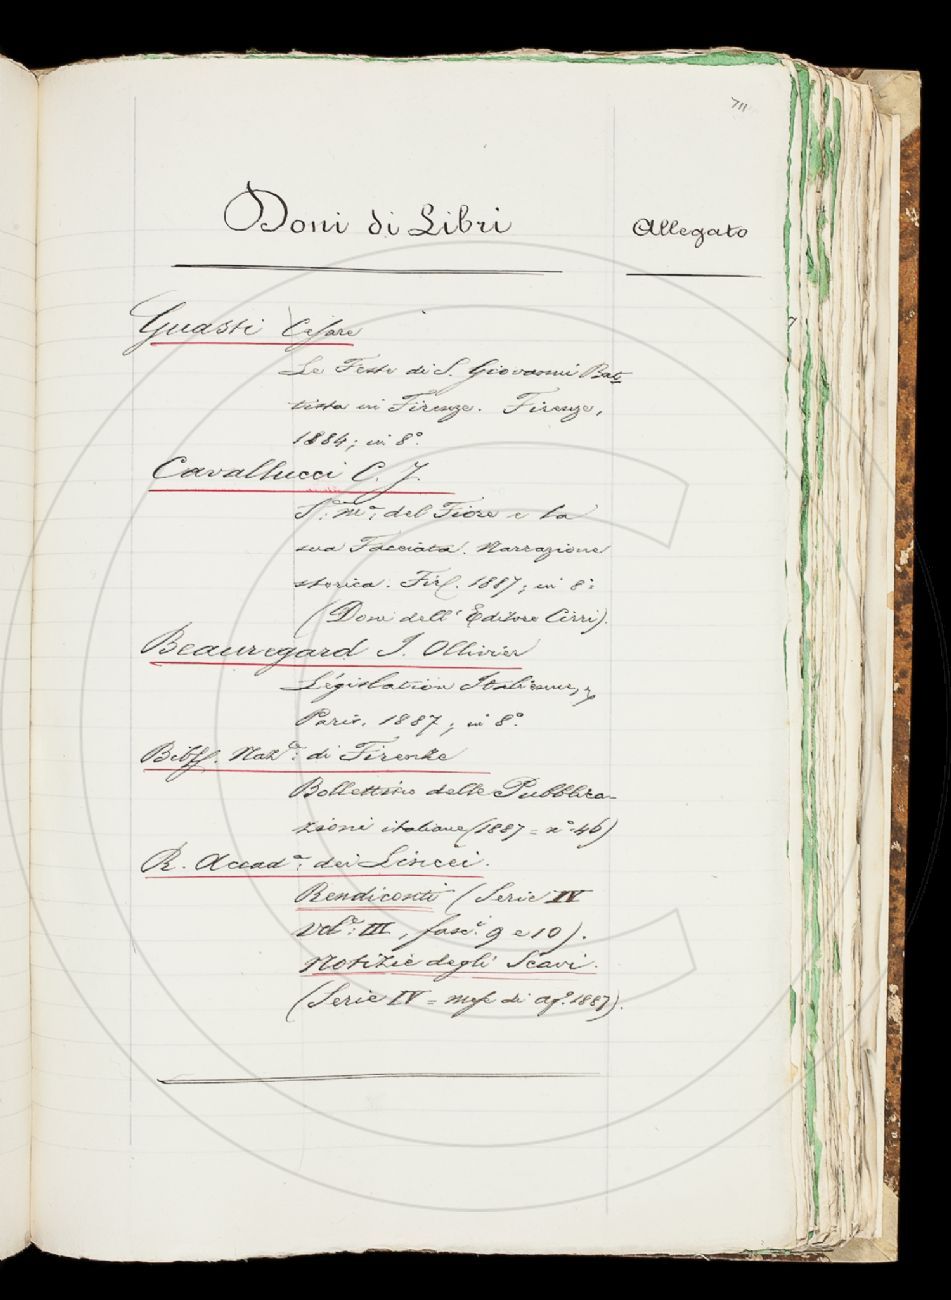 711
Doni di Libri
Allegato
Guasti Cesare
Le Feste di S. Giovanni Bat-
tista in Firenze. Firenze,
1884; in 8°.
Cavallucci C. J.
S.ª M.ª del Fiore e la
sua Facciata. Narrazione
storica. Fir. 1887; in 8°:
(Doni dell' Editore Cirri).
Beauregard J. Ollivier
Législation Italienne,
Paris, 1887; in 8°.
Bibl. Naz.e: di Firenze
Bollettino delle Pubblica-
zioni italiane (1887 = n° 46)
R. Accad.a: dei Lincei.
Rendiconti (Serie IV
vol.e: III, fasc.i 9 e 10).
Notizie degli Scavi.
(Serie IV = mese di ag.º 1887).